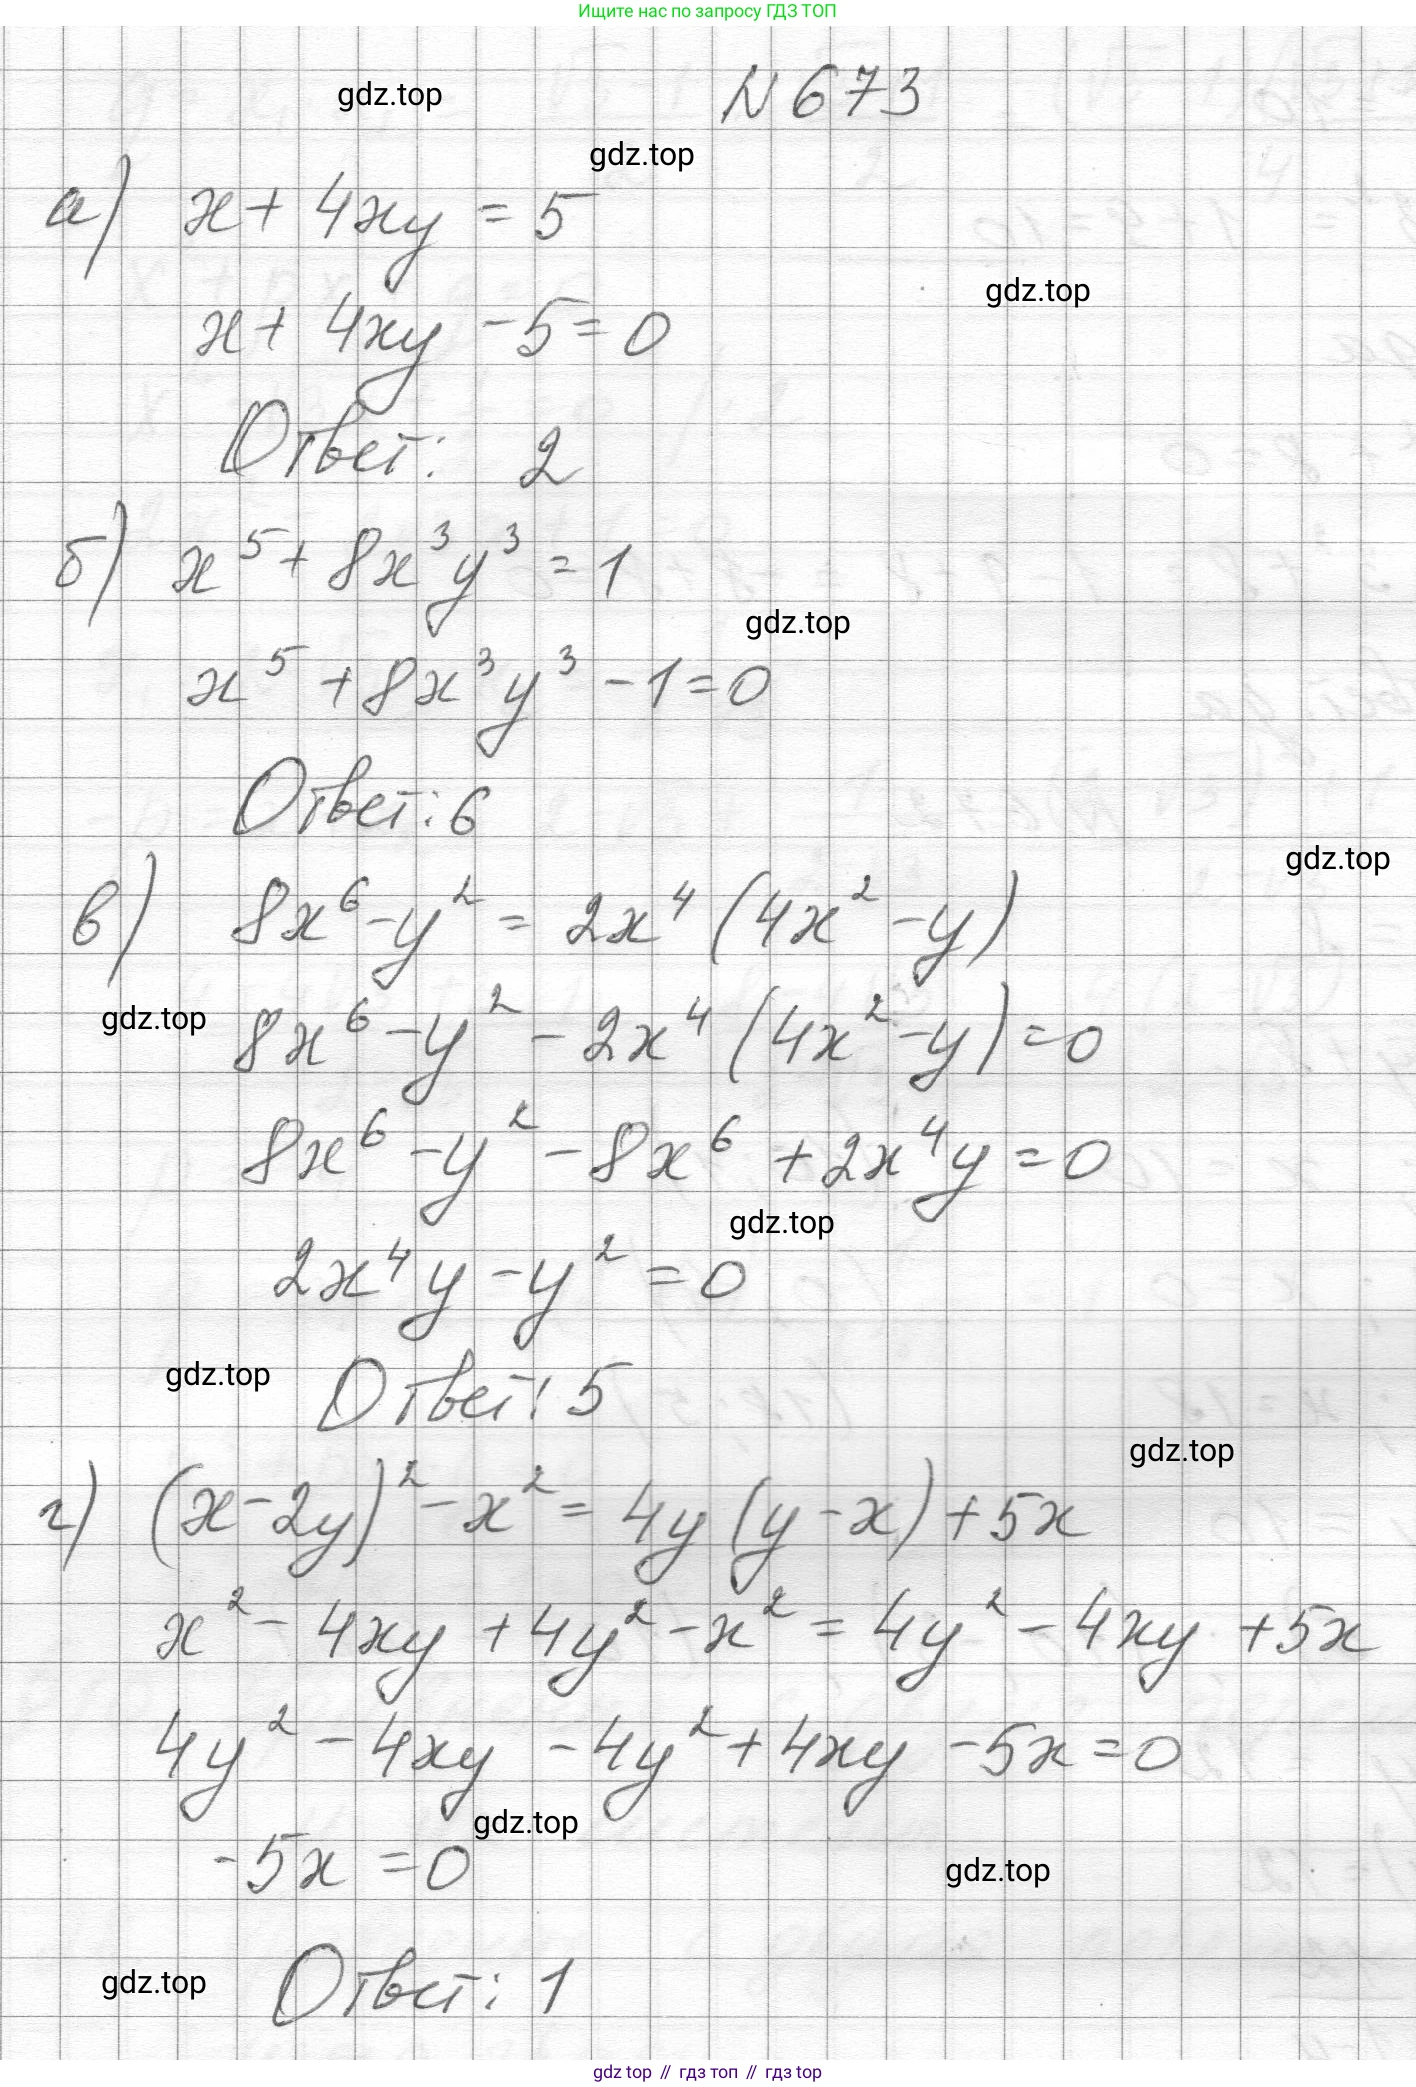 Ищите нас по запросу ГДЗ ТОП
N 673
gdz.top
gdz.top
а) x + 4xy = 5
gdz.top
x + 4xy - 5 = 0
Ответ: 2
б) x⁵ + 8x³y³ = 1
gdz.top
x⁵ + 8x³y³ - 1 = 0
Ответ: 6
gdz.top
в) 8x⁶ - y² = 2x⁴ (4x² - y)
gdz.top
8x⁶ - y² - 2x⁴ (4x² - y) = 0
8x⁶ - y² - 8x⁶ + 2x⁴y = 0
gdz.top
2x⁴y - y² = 0
gdz.top
Ответ: 5
gdz.top
г) (x - 2y)² - x² = 4y (y - x) + 5x
x² - 4xy + 4y² - x² = 4y² - 4xy + 5x
4y² - 4xy - 4y² + 4xy - 5x = 0
gdz.top
-5x = 0
gdz.top
gdz.top
Ответ: 1
gdz top // гдз топ // гдз top